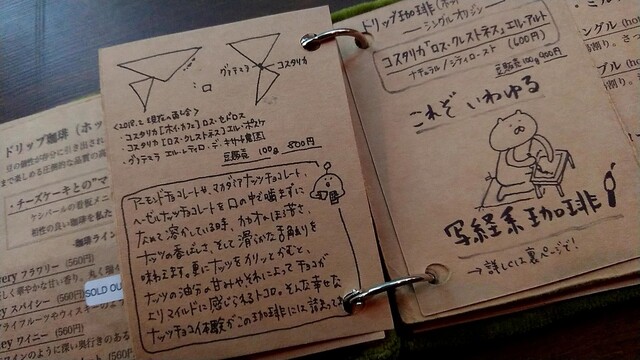 グァテマラ
コスタリカ
・コスタリカ[ボイ・カフェ]ロス・セドロス
・コスタリカ[ロス・クレストネス]エル・ボスケ
・グァテマラ エル・レティロ・デ・
豆販売 100g 800円
アーモンドチョコレートや、マカダミアナッツチョコレート、
ヘーゼルナッツチョコレートを口の中で噛まずに
ためて溶かしている時、カカオのほろ苦さ、
ナッツの香ばしさ、そして滑らかな舌触りを
味わえます。更にナッツをカリッとかむと、
ナッツの油分の甘みやそれによってチョコが
よりマイルドに感じらるトコロ。そんな幸せな
ナッツチョコ体験がこの珈琲には詰まってる
ドリップ珈琲(ホッ
ーシングルオリジンー
コスタリカ「ロス・クレストネス」エル・アルト
ナチュラル/シティロースト (600円)
豆販売100g 900円
これぞ いわゆる
写経系珈琲
→詳しくは裏ページで!
ドリップ珈琲(ホッ
豆の個性が存分に引き出され
まで楽しめる圧倒的な品質の高
・チーズケーキとの"マ
ケンバールの看板メニ
相性の良い珈琲を私た
珈琲ライン
フラワリー (560円)
SOLD OU
スパイシー (560円)
ワイニー (560円)
ワインのように深い奥行きのある